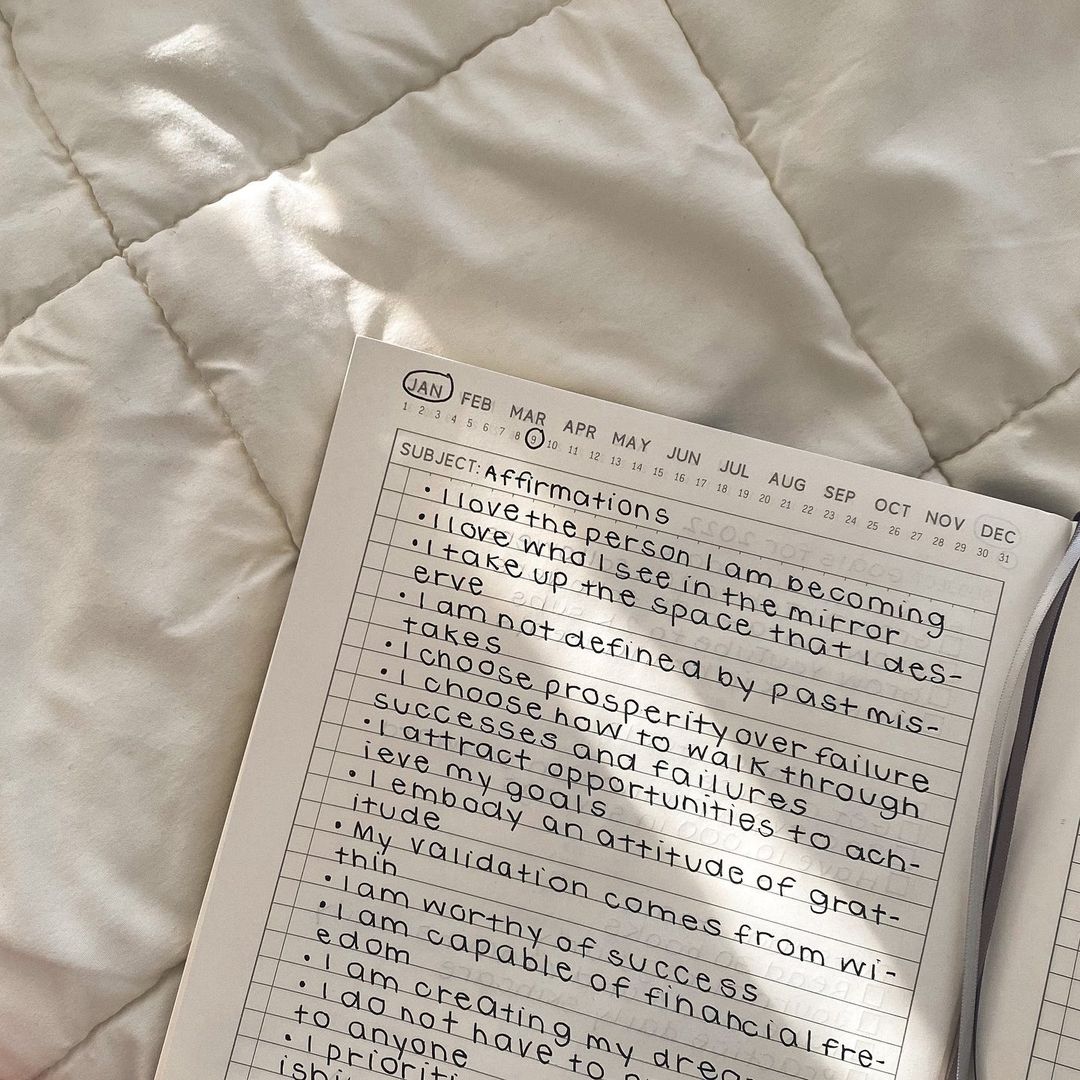 JAN FEB MAR APR MAY JUN JUL AUG SEP OCT NOV DEC
1 2 3 4 5 6 7 8 9 10 11 12 13 14 15 16 17 18 19 20 21 22 23 24 25 26 27 28 29 30 31
SUBJECT: Affirmations
• I love the person I am becoming
• I love who I see in the mirror
• I take up the space that I des-
erve
• I am not defined by past mis-
takes
• I choose prosperity over failure
• I choose how to walk through
successes and failures
• I attract opportunities to ach-
ieve my goals
• I embody an attitude of grat-
itude
• My validation comes from wi-
thin
• I am worthy of success
• I am capable of financial fre-
edom
• I am creating my
• I do not have to
to anyone
• I